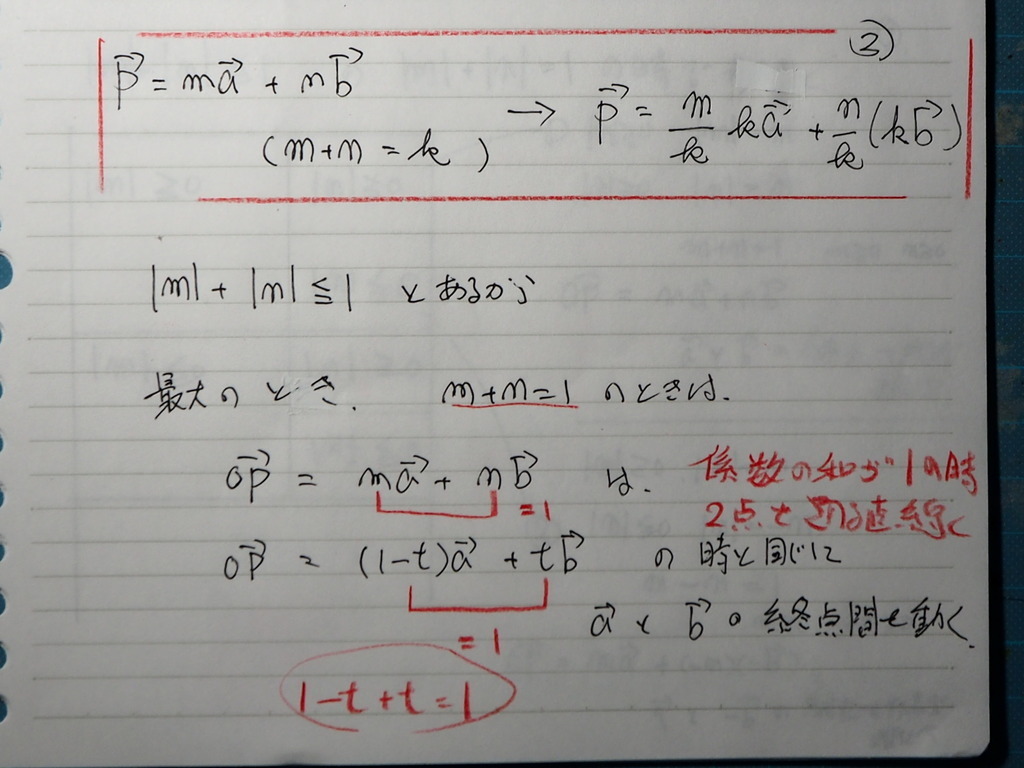 ②
p⃗ = ma⃗ + nb⃗
(m+n = k) → p⃗ = m/k ka⃗ + n/k (kb⃗)
|m| + |n| ≦ 1 とあるから
最大のとき. m+n=1 のときは.
OP⃗ = ma⃗ + nb⃗ は. 係数の和が1の時
=1 2点を通る直線
OP⃗ = (1-t)a⃗ + tb⃗ の時と同じに
a⃗ と b⃗ の終点間を動く.
=1
1-t+t=1